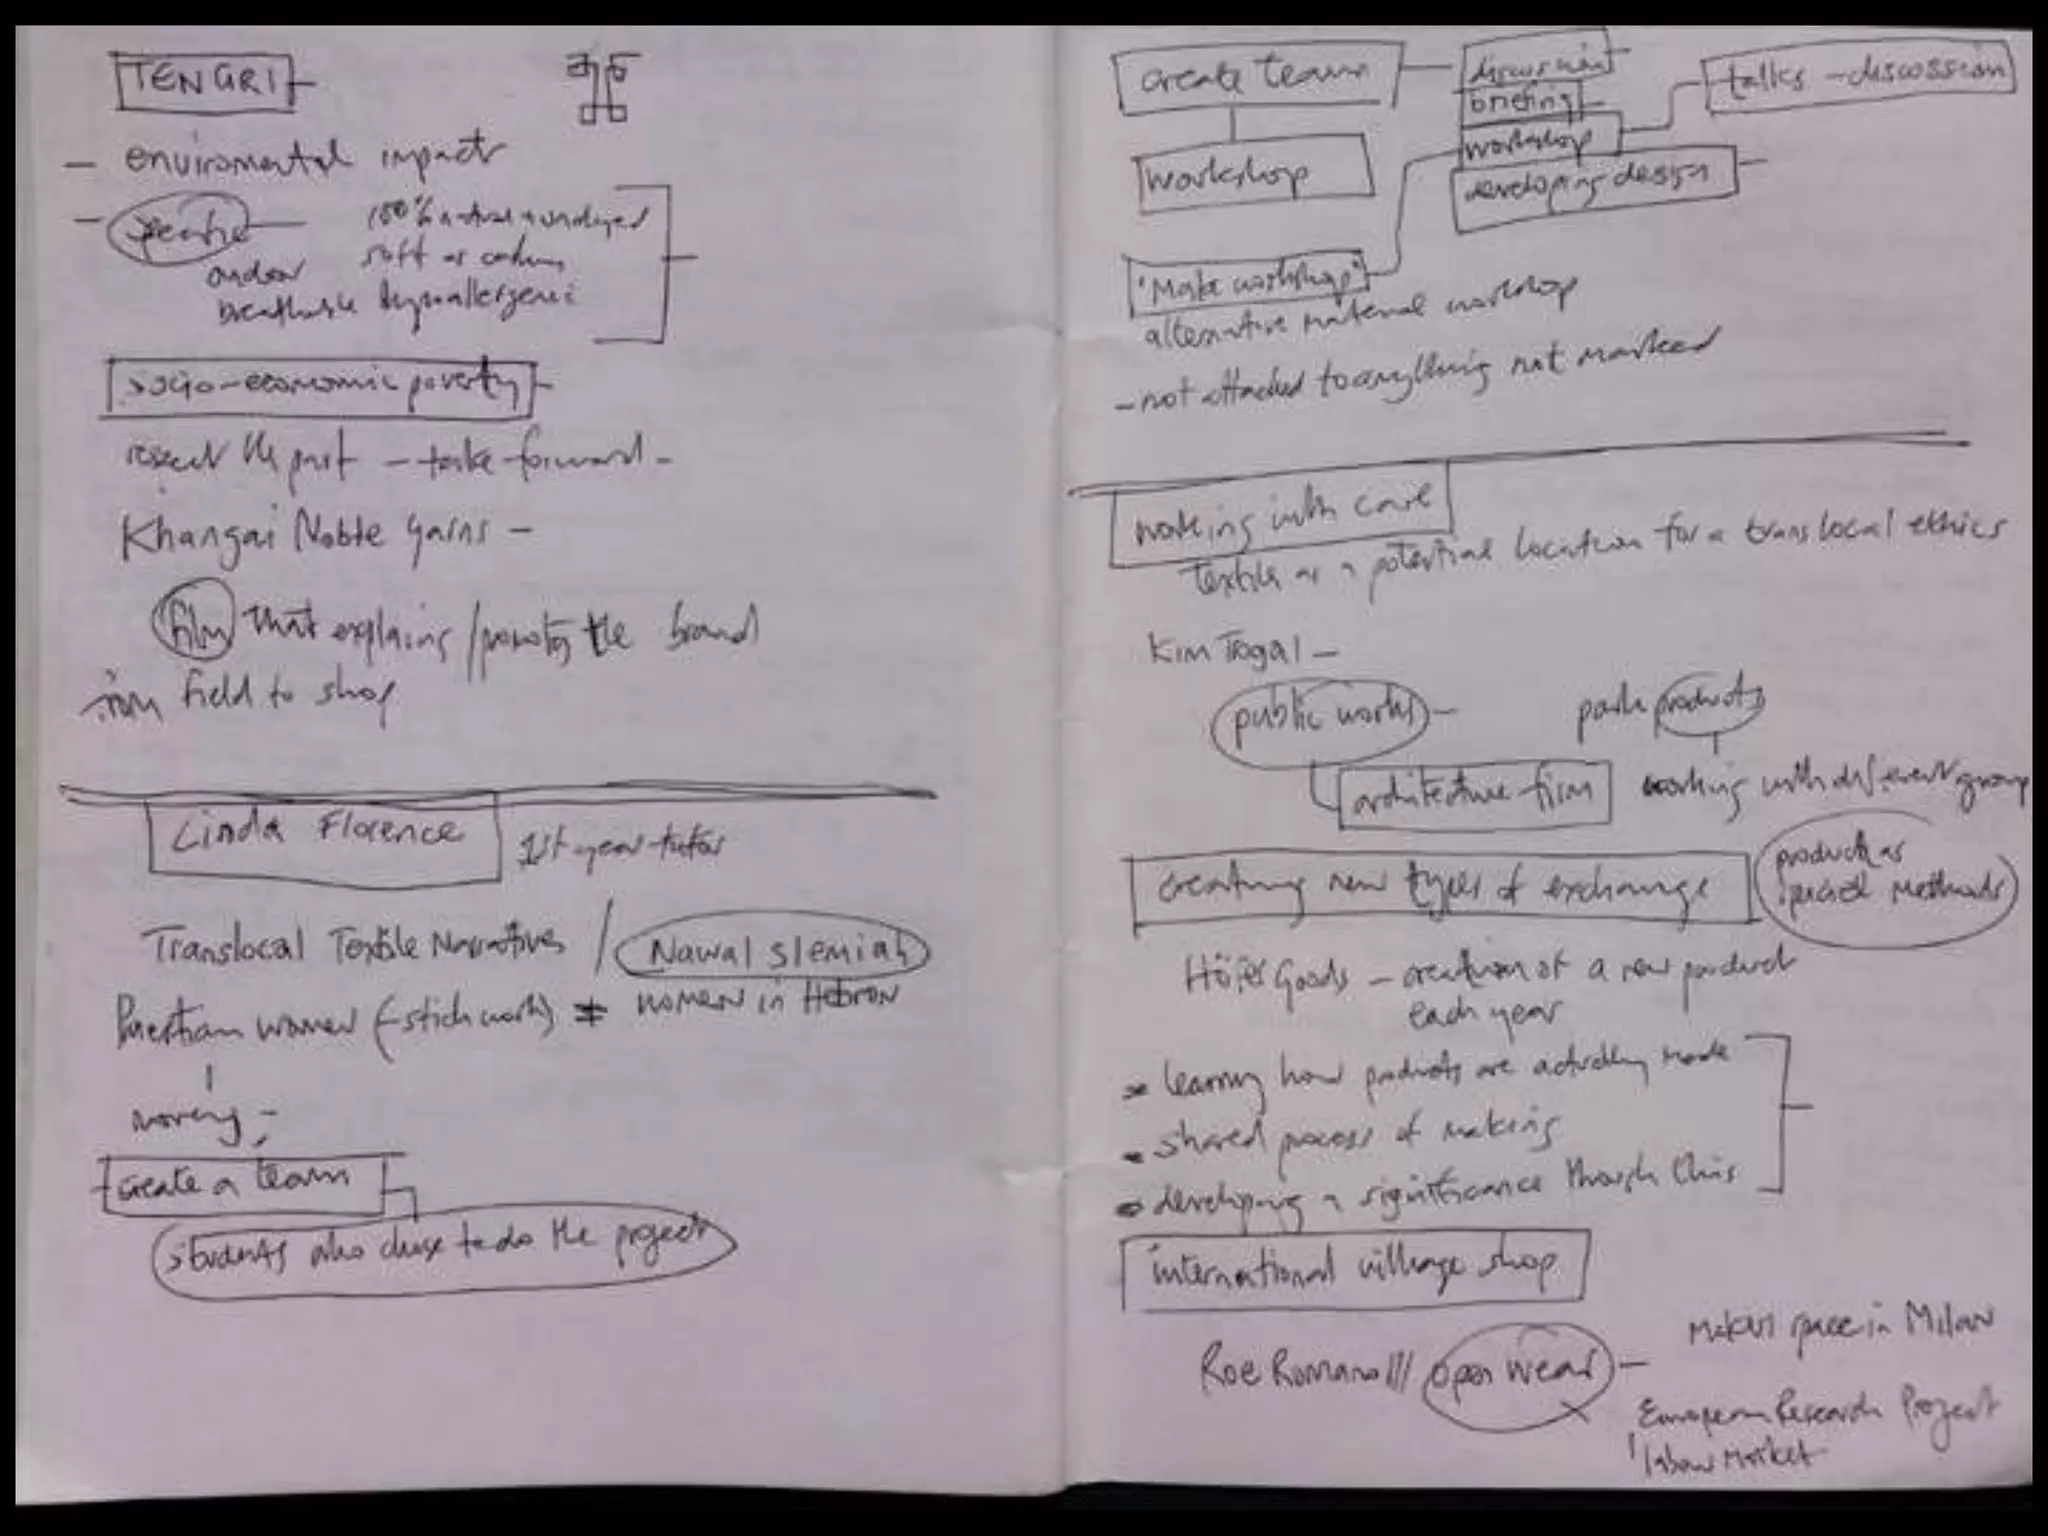 TENGRI
- enviromental impact
100% natural + undyed
soft as
breathable hypoallergenic
socio-economic poverty
respect the past - take forward -
Khangai Noble Yarns -
film that explains / promotes the brand
from field to shop
Linda Florence 1st year tutor
Translocal Textile Narratives / Nawal Slemiah
women (-stichwork) women in Hebron
create a team
students who chose to do the project
create team
discussion
briefing
workshop
developing design
talks - discossion
workshop
"Make workshop"
alternative material workshop
- not attached to anything not marked
working with care
textile as a potential location for a translocal ethics
Kim Trogal -
public works - park products
architecture firm working with different group
creating new types of exchange
product as
methods
Höfer Goods - creation of a new product
each year
learning how products are actually made
shared process of making
developing a significance through this
international village shop
Roe Romano /// open wear -
makers space in Milan
European Research Project
labour market